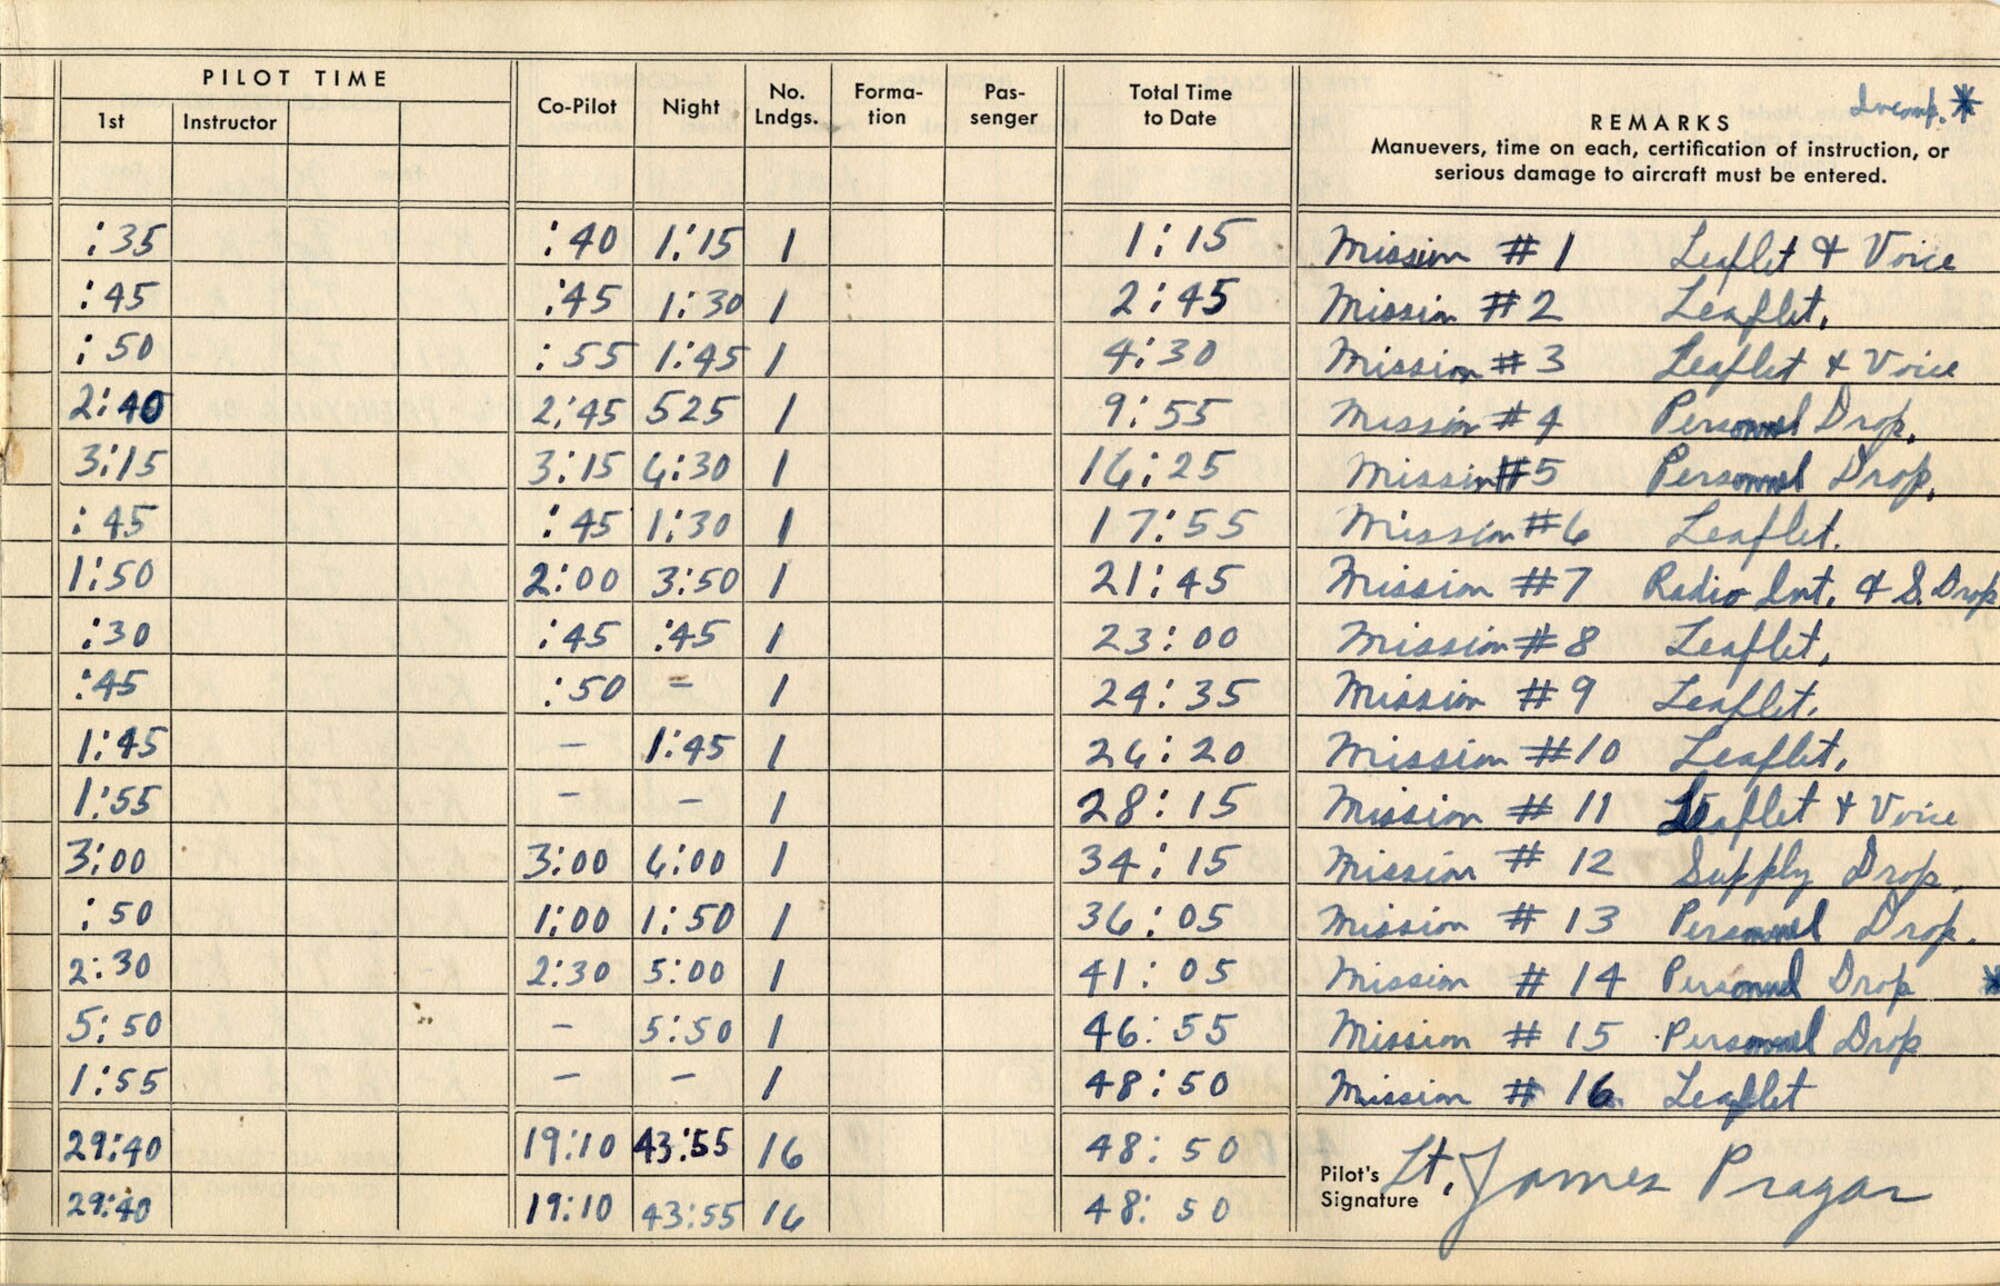 PILOT TIME Co-Pilot Night No. Lndgs. Forma- tion Pas- senger Total Time to Date REMARKS Incomp. *
1st Instructor Manuevers, time on each, certification of instruction, or
serious damage to aircraft must be entered.
:35 :40 1:15 1 1:15 Mission #1 Leaflet & Voice
:45 :45 1:30 1 2:45 Mission #2 Leaflet.
:50 :55 1:45 1 4:30 Mission #3 Leaflet & Voice
2:40 2:45 525 1 9:55 Mission #4 Personnel Drop.
3:15 3:15 6:30 1 16:25 Mission #5 Personnel Drop.
:45 :45 1:30 1 17:55 Mission #6 Leaflet.
1:50 2:00 3:50 1 21:45 Mission #7 Radio Int. & S. Drop
:30 :45 :45 1 23:00 Mission #8 Leaflet.
:45 :50 – 1 24:35 Mission #9 Leaflet.
1:45 – 1:45 1 26:20 Mission #10 Leaflet.
1:55 – – 1 28:15 Mission #11 Leaflet & Voice
3:00 3:00 6:00 1 34:15 Mission #12 Supply Drop.
:50 1:00 1:50 1 36:05 Mission #13 Personnel Drop.
2:30 2:30 5:00 1 41:05 Mission #14 Personnel Drop *
5:50 – 5:50 1 46:55 Mission #15 Personnel Drop
1:55 – – 1 48:50 Mission #16 Leaflet
29:40 19:10 43:55 16 48:50
Pilot's Signature Lt. James Pragar
29:40 19:10 43:55 16 48:50